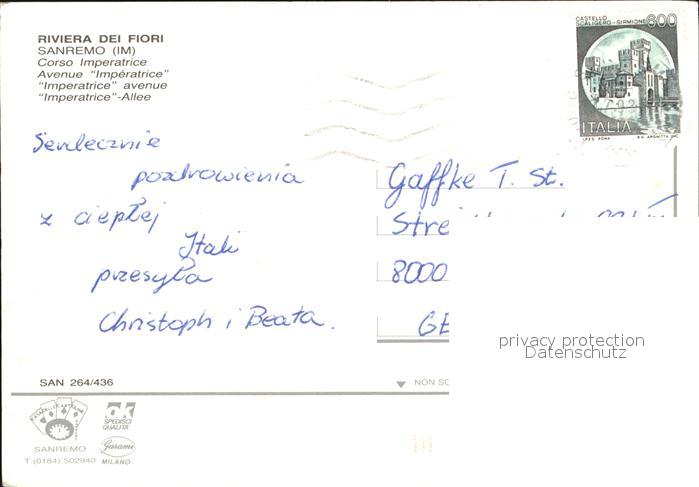 RIVIERA DEI FIORI
SANREMO (IM)
Corso Imperatrice
Avenue "Impératrice"
"Imperatrice" avenue
"Imperatrice"-Allee
CASTELLO
SCALIGERO - SIRMIONE 800
ITALIA
I.P.Z.S. ROMA
Serdecznie
pozdrowienia
z ciepłej
Itali
przesyła
Christoph i Beata.
Gaffke T. St.
Stre
8000
GE
privacy protection
Datenschutz
SAN 264/436
NON SC
OK
SPEDISCI
QUALITÀ
Garami
MILANO
SANREMO
T. (0184) 502940